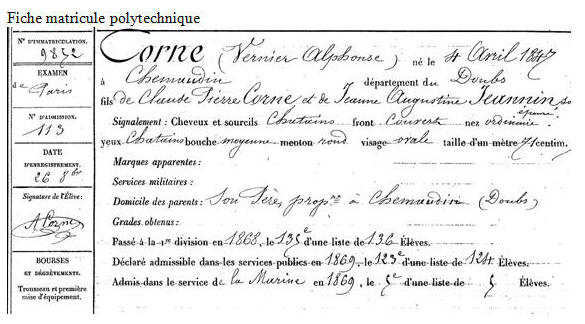 Fiche matricule polytechnique
N° D'IMMATRICULATION.
9832
EXAMEN
de Paris
N° D'ADMISSION.
113
DATE
D'ENREGISTREMENT.
26 8bre
Signature de l'Élève:
A Corne
BOURSES
ET DÉGRÈVEMENTS.
Trousseau et première
mise d'équipement.
Corne (Vernier Alphonse) né le 4 Avril 1847
à Chemaudin département du Doubs
fils de Claude Pierre Corne et de Jeanne Augustine Jeannin, so
épouse
Signalement: Cheveux et sourcils Chatains front Couvert nez ordinaire
yeux Chatains bouche moyenne menton rond visage ovale taille d'un mètre 71 centim.
Marques apparentes:
Services militaires:
Domicile des parents: Son Père, propre à Chemaudin (Doubs)
Grades obtenus:
Passé à la 1re division en 1868, le 135e d'une liste de 136 Élèves.
Déclaré admissible dans les services publics en 1869, le 123e d'une liste de 124 Élèves.
Admis dans le service de la Marine en 1869, le 5e d'une liste de 5 Élèves.